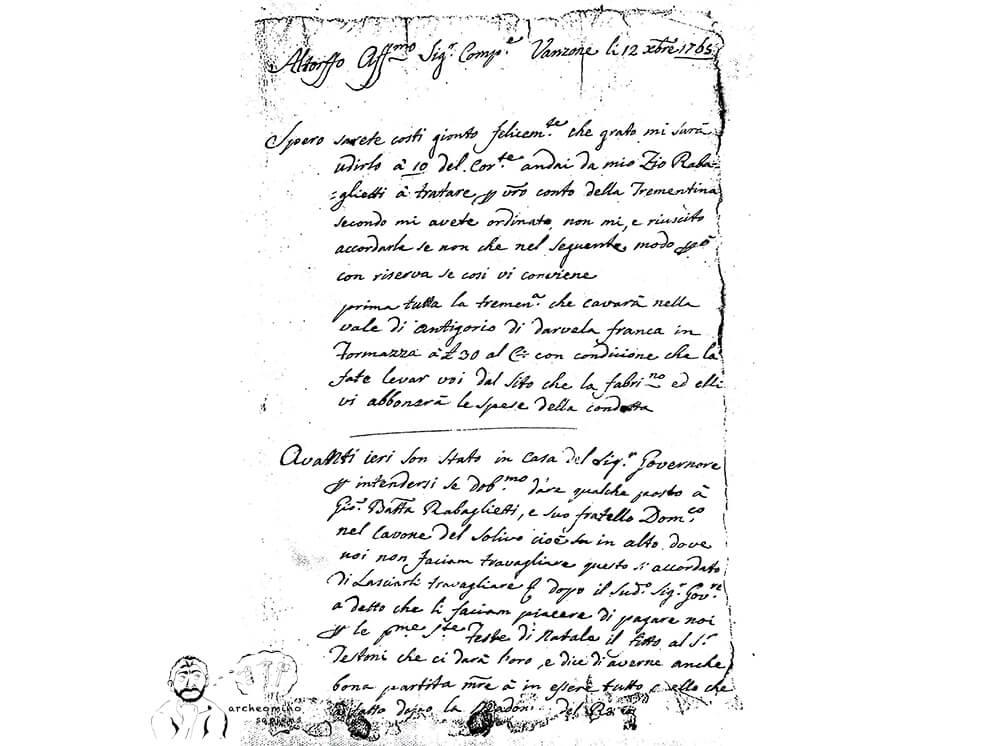 Altorffo Aff.mo Sig.r Comp.e Vanzone li 12 xbre 1765
Spero sarete costi gionto felicem.te che grato mi sarà
udirlo à 10 del Cor.te andai da mio Zio Raba=
=glietti à tratare, p vro conto della Trementina
secondo mi avete ordinato, non mi, e riuscito
accordarla se non che nel seguente modo p.ò
con riserva se così vi conviene
prima tutta la tremen.a che cavarà nella
vale di antigorio di darvela franca in
Formazza à £ 30 al C.o con condicione che la
fate levar voi dal sito che la fabri.no ed elli
vi abbonarà le spese della condotta
Avantti ieri son stato in casa del Sig.r Governore
p intendersi se dob.mo dare qualche posto à
Gio. Batta Rabaglietti, e suo fratello Dom.co
nel cavone del Solivo cioè sù in alto dove
noi non faciam travagliare questo si accordato
di Lasciarli travagliare e dopo il Sud.o Sig.r Gov.re
a detto che li faciam piacere di pagare noi
p le pme S.te Feste di Natale il fitto al S.r
Testoni che ci darà l'oro, e dice di averne anche
bona partita mre à in essere tutto quello che
à fatto dopo la Madon. del
archeomino
sapiens